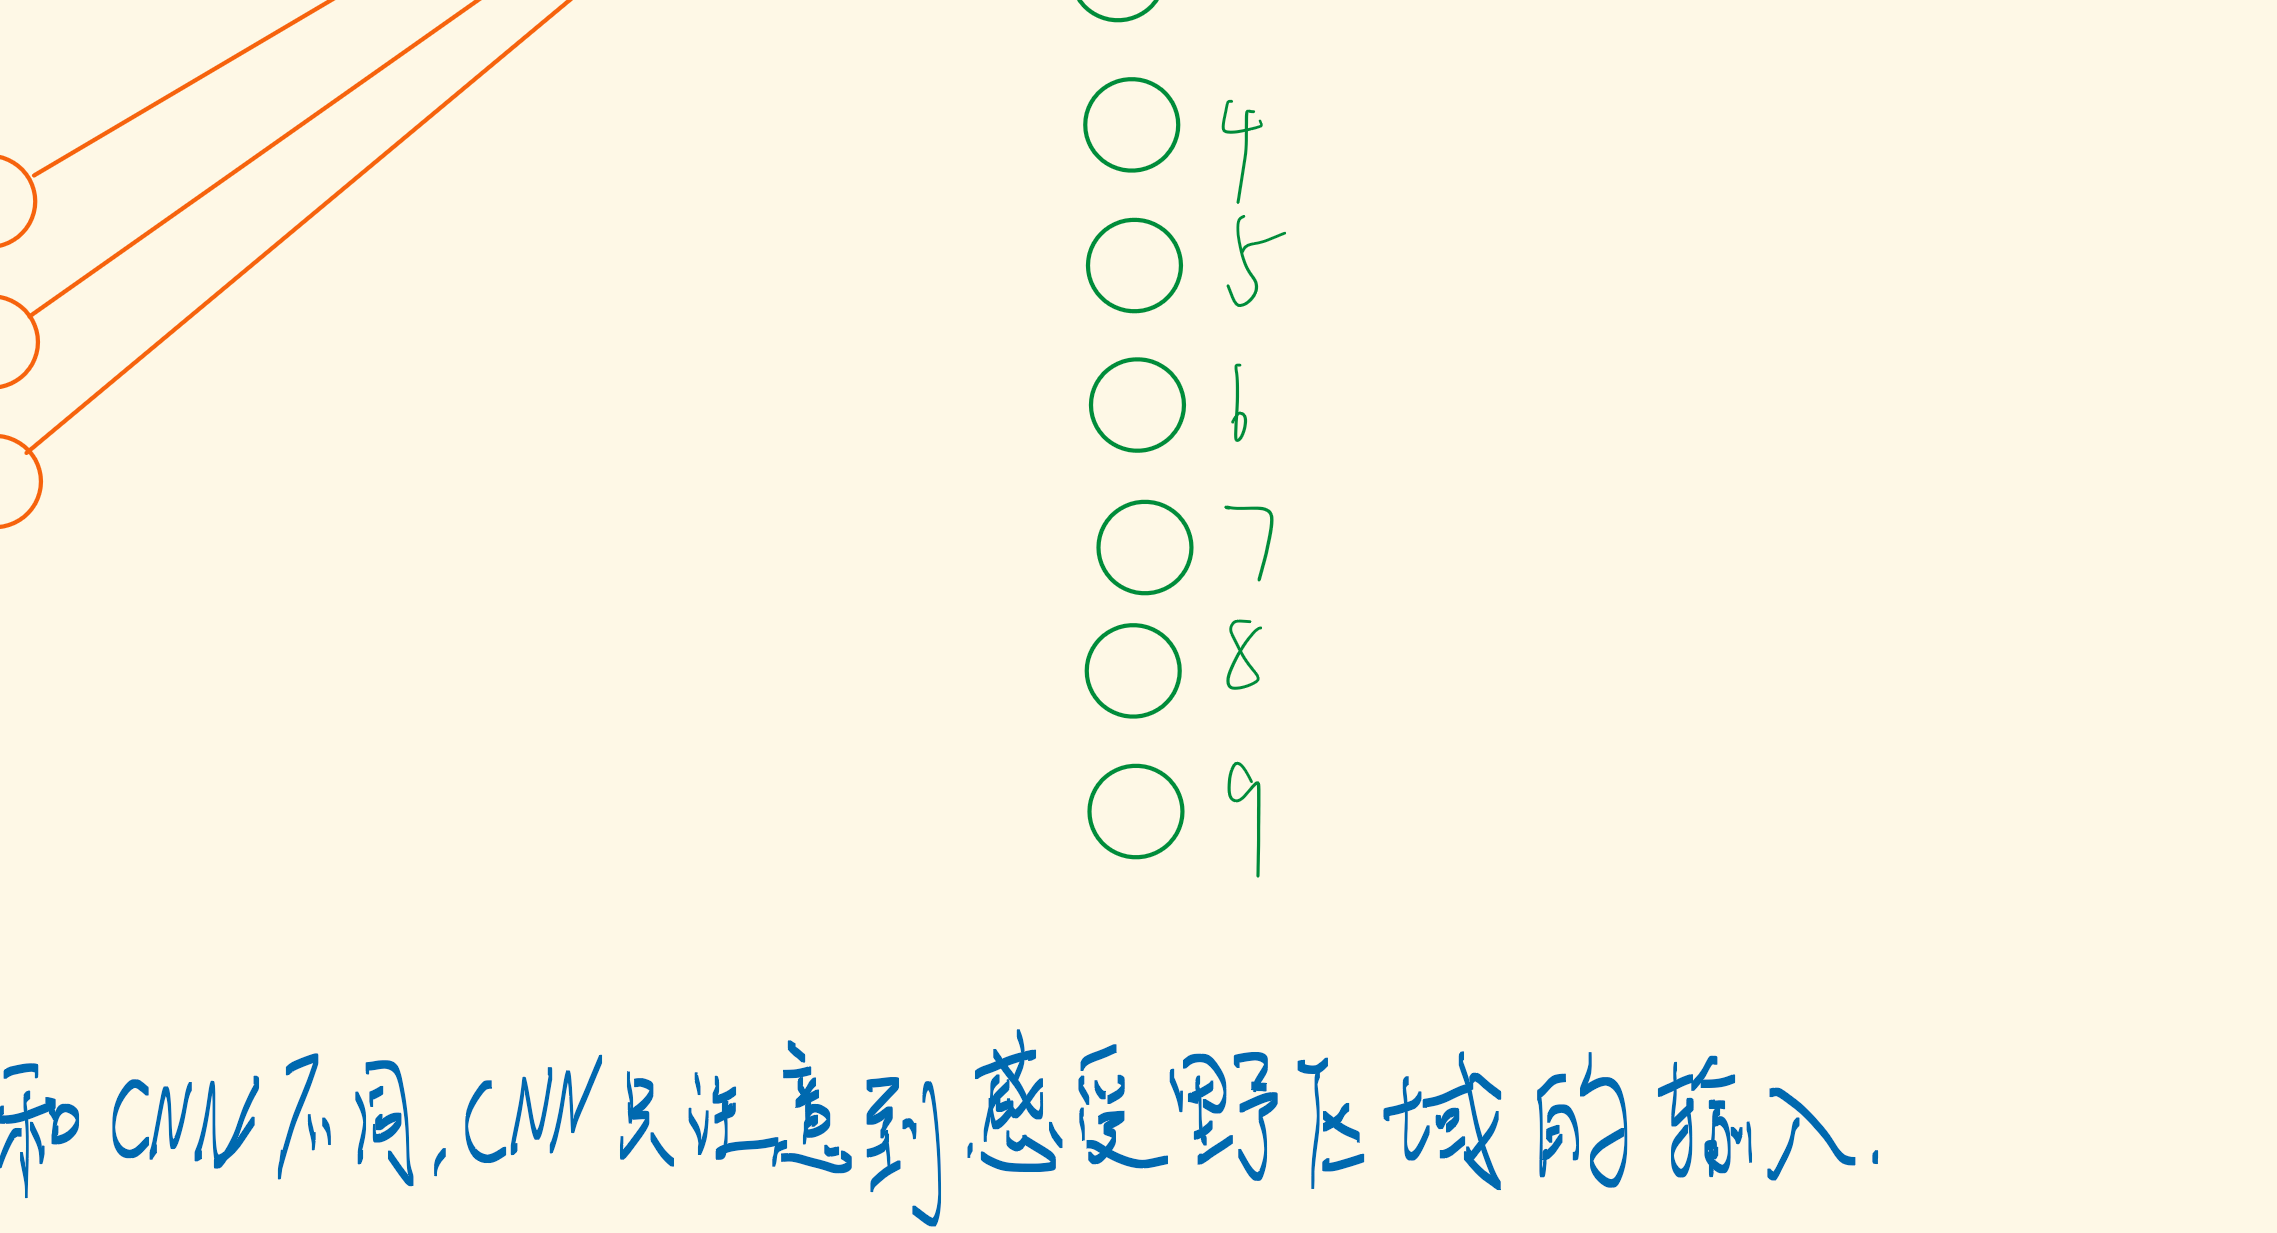 4
5
6
7
8
9
和CNN不同,CNN只注意到感受野区域的输入.